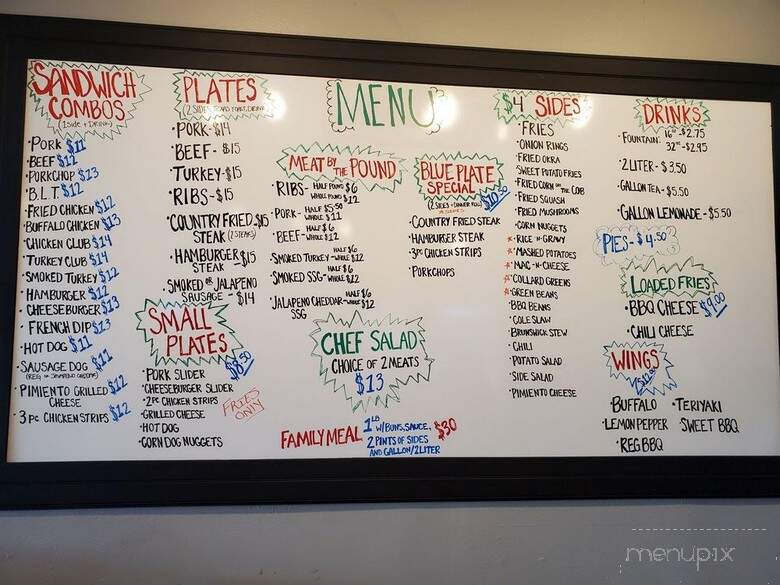 SANDWICH
COMBOS
(1 Side + DRINK)
•PORK $11
•BEEF $12
•PORKCHOP $13
•B.L.T. $12
•FRIED CHICKEN $12
•BUFFALO CHICKEN $13
•CHICKEN CLUB $14
•TURKEY CLUB $14
•SMOKED TURKEY $12
•HAMBURGER $12
•CHEESEBURGER $13
•FRENCH DIP $13
•HOT DOG $11
•SAUSAGE DOG $11
(REG OR JALAPENO CHEDDAR)
•PIMIENTO GRILLED $12
CHEESE
•3 PC CHICKEN STRIPS $12
PLATES
(2 SIDES, TEXAS TOAST, DRINK)
•PORK-$14
•BEEF-$15
•TURKEY-$15
•RIBS-$15
•COUNTRY FRIED $15
STEAK (2 STEAKS)
•HAMBURGER $15
STEAK
•SMOKED OR JALAPENO
SAUSAGE - $14
SMALL
PLATES
$8.50
•PORK SLIDER
•CHEESEBURGER SLIDER
•2PC CHICKEN STRIPS
•GRILLED CHEESE
•HOT DOG
•CORN DOG NUGGETS
FRIES
ONLY
MENU
MEAT BY THE POUND
•RIBS- HALF POUND $6
WHOLE POUND $12
•PORK- HALF $5.50
WHOLE $11
•BEEF- HALF $6
WHOLE $12
•SMOKED TURKEY- HALF $6
WHOLE $12
•SMOKED SSG- HALF $6
WHOLE $12
•JALAPENO CHEDDAR- HALF $6
WHOLE $12
SSG
CHEF SALAD
CHOICE OF 2 MEATS
$13
FAMILY MEAL 1 LB W/ BUNS, SAUCE, $30
2 PINTS OF SIDES
AND GALLON/2LITER
BLUE PLATE
SPECIAL $10.50
(2 SIDES + DINNER ROLL)
•COUNTRY FRIED STEAK
•HAMBURGER STEAK
•3PC CHICKEN STRIPS
•PORKCHOPS
$4 SIDES
•FRIES
•ONION RINGS
•FRIED OKRA
•SWEET POTATO FRIES
•FRIED CORN ON THE COB
•FRIED SQUASH
•FRIED MUSHROOMS
•CORN NUGGETS
*•RICE -N- GRAVY
*•MASHED POTATOES
*•MAC-N-CHEESE
*•COLLARD GREENS
*•GREEN BEANS
•BBQ BEANS
•COLE SLAW
•BRUNSWICK STEW
•CHILI
•POTATO SALAD
•SIDE SALAD
•PIMIENTO CHEESE
DRINKS
•FOUNTAIN 16oz-$2.75
32oz-$2.95
•2LITER-$3.50
•GALLON TEA-$5.50
•GALLON LEMONADE-$5.50
PIES-$4.50
LOADED FRIES
•BBQ CHEESE $9.00
•CHILI CHEESE
WINGS
•BUFFALO •TERIYAKI
•LEMON PEPPER •SWEET BBQ
•REG BBQ
menupix